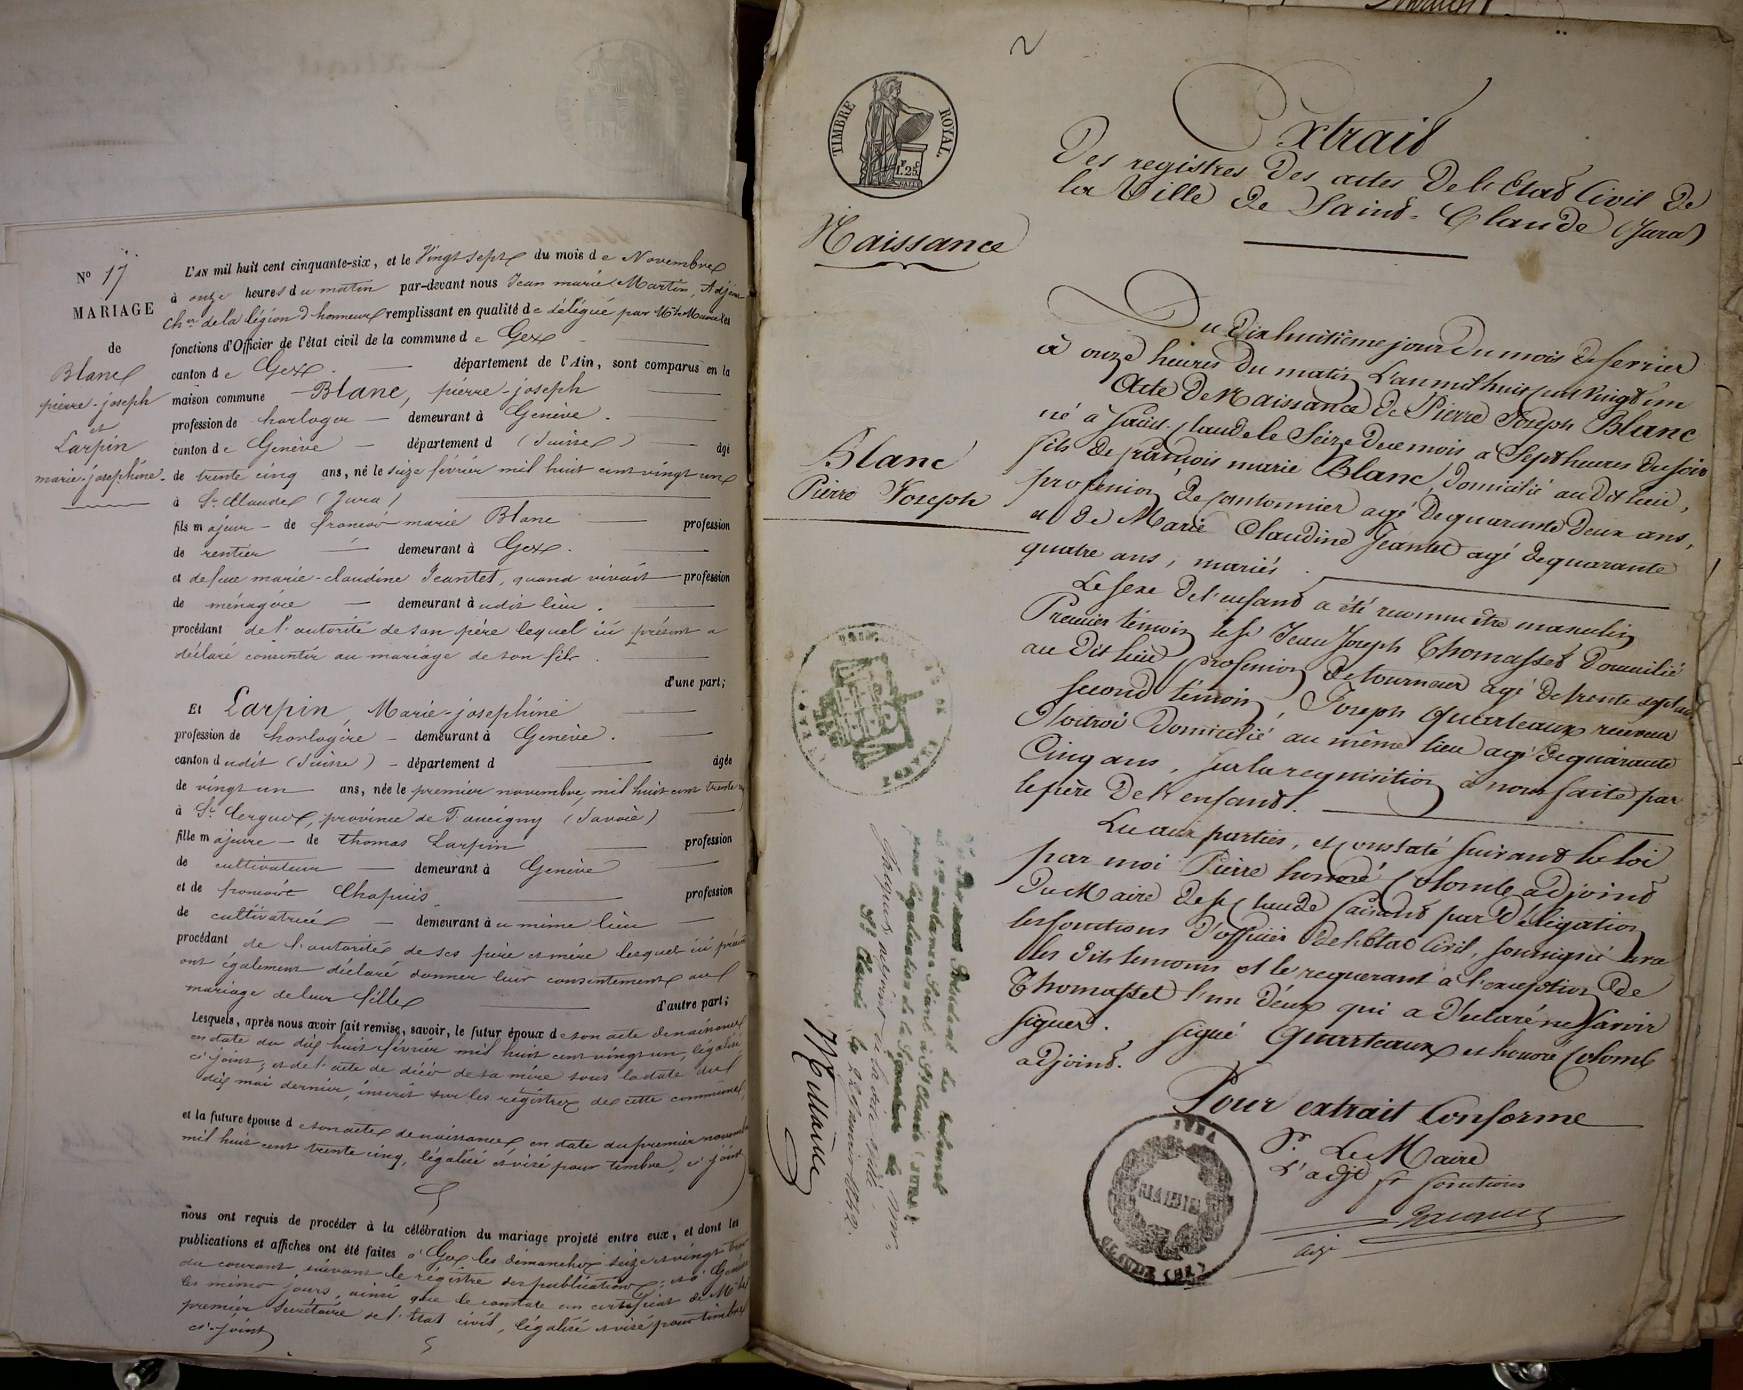 N° 17
MARIAGE
de
Blanc
pierre-joseph
et
Larpin
marie-joséphine.
L'AN mil huit cent cinquante-six, et le Vingt sept du mois de Novembre
à onze heures du matin par-devant nous Jean marie Martin, Adjoint
Ch.er de la légion d'honneur remplissant en qualité de délégué par Mr le Maire les
fonctions d'Officier de l'état civil de la commune de Gex
canton de Gex. département de l'Ain, sont comparus en la
maison commune Blanc, pierre-joseph
profession de horloger demeurant à Genève.
canton de Genève département d (Suisse) âgé
de trente cinq ans, né le seize février mil huit cent vingt un
à St Claude (Jura)
fils majeur de françois marie Blanc profession
de rentier demeurant à Gex.
et de feue marie-claudine Jeantet, quand vivait profession
de ménagère demeurant à udit lieu.
procédant de l'autorité de son père lequel ici présent a
déclaré consentir au mariage de son fils.
d'une part;
Et Larpin, Marie-joséphine
profession de horlogère demeurant à Genève.
canton dudit (Suisse) département d âgée
de vingt un ans, née le premier novembre, mil huit cent trente
à St province de Faucigny (Savoie)
fille majeure de thomas Larpin profession
de cultivateur demeurant à Genève
et de françoise Chapuis profession
de cultivatrice demeurant au même lieu
procédant de l'autorité de ses père et mère lesquels ici présents
ont également déclaré donner leur consentement au
mariage de leur fille d'autre part;
Lesquels, après nous avoir fait remise, savoir, le futur époux de son acte de naissance
en date du dix huit février mil huit cent vingt un, légalisé
ci-joint, et de l'acte de décès de sa mère sous la date du
dix mai dernier, inscrit sur les régistres de cette commune,
et la future épouse de son acte de naissance en date du premier novembre
mil huit cent trente cinq, légalisé et visé pour timbre, ci joint
nous ont requis de procéder à la célébration du mariage projeté entre eux, et dont les
publications et affiches ont été faites à Gex les dimanches seize et vingt trois
du courant, suivant le régistre des publications, et à Genève
les mêmes jours, ainsi que le constate un certificat de Mr le
premier secrétaire de l'état civil, légalisé et visé pour timbre
ci-joint
2
TIMBRE ROYAL
1F 25C
Extrait
Des registres Des actes De l'Etat Civil de
la Ville de Saint-Claude (Jura)
Naissance
Blanc
Pierre Joseph
Du Dix huitième jour du mois de fevrier
à onze heures du matin L'an mil huit cent vingt un
Acte De Naissance de Pierre Joseph Blanc
né à Saint-Claude le Seize Du ce mois à Sept heures du soir
fils de françois marie Blanc, Domicilié au dit lieu,
profession de cantonnier agé De quarante Deux ans,
et de Marie Claudine Jeantet agé de quarante
quatre ans, mariés.
Le sexe De l'enfant a été reconnu être masculin
Premier témoin le Sr Jean Joseph Thomasset Domicilié
au Dit lieu profession De tourneur agé De trente sept ans
second témoin, Joseph Quarteaux receveur
d'octroi Domicilié au même lieu agé De quarante
Cinq ans, sur la requisition à nous faite par
le père De l'enfant.
Lu aux parties, et constaté suivant la loi
par moi Pierre honoré Colomb adjoint
Du Maire de St Claude faisant par Délégation
les fonctions d'officier de l'Etat Civil, soussigné avec
les dits témoins et le requerant à l'exception de
Thomasset l'un d'eux qui a Déclaré ne savoir
signer. signé Quarteaux et honoré Colomb
adjoint.
Pour extrait Conforme
Pr. Le Maire
L'adjt fr fonctions
Jacquet
JURA
Vu Par nous Président du tribunal
de 1re instance séant à St Claude (JURA)
pour légalisation de la Signature de Mr
Jacquet adjoint de la dite ville
St Claude le 22 1842.